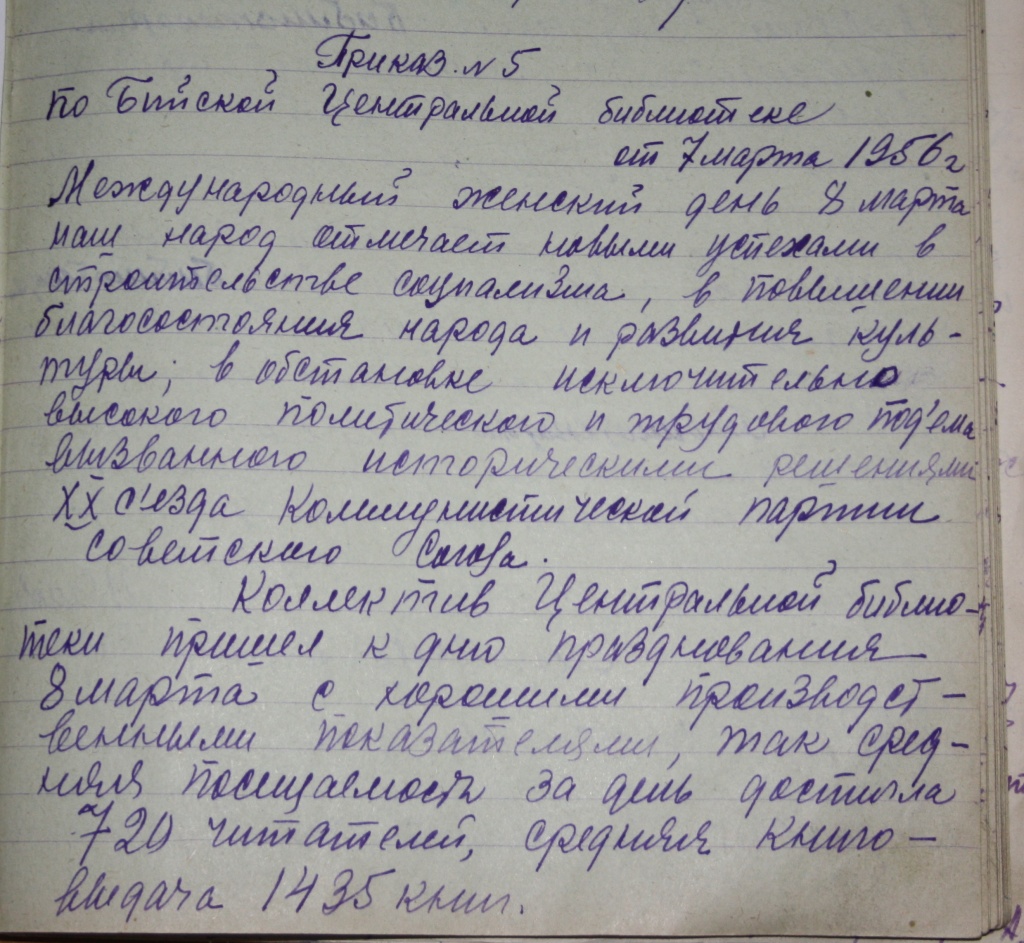 Приказ. № 5
по Бийской Центральной библиотеке
от 7 марта 1956 г
Международный женский день 8 марта
наш народ отмечает новыми успехами в
строительстве социализма, в повышении
благосостояния народа и развития куль-
туры; в обстановке исключительно
высокого политического и трудового под'ема
вызванного историческими решениями
XX с'езда Коммунистической партии
Советского Союза.
Коллектив Центральной библио-
теки пришел к дню празднования
8 марта с хорошими производст-
венными показателями, так сред-
няя посещаемость за день достигла
720 читателей, средняя книго-
выдача 1435 книг.